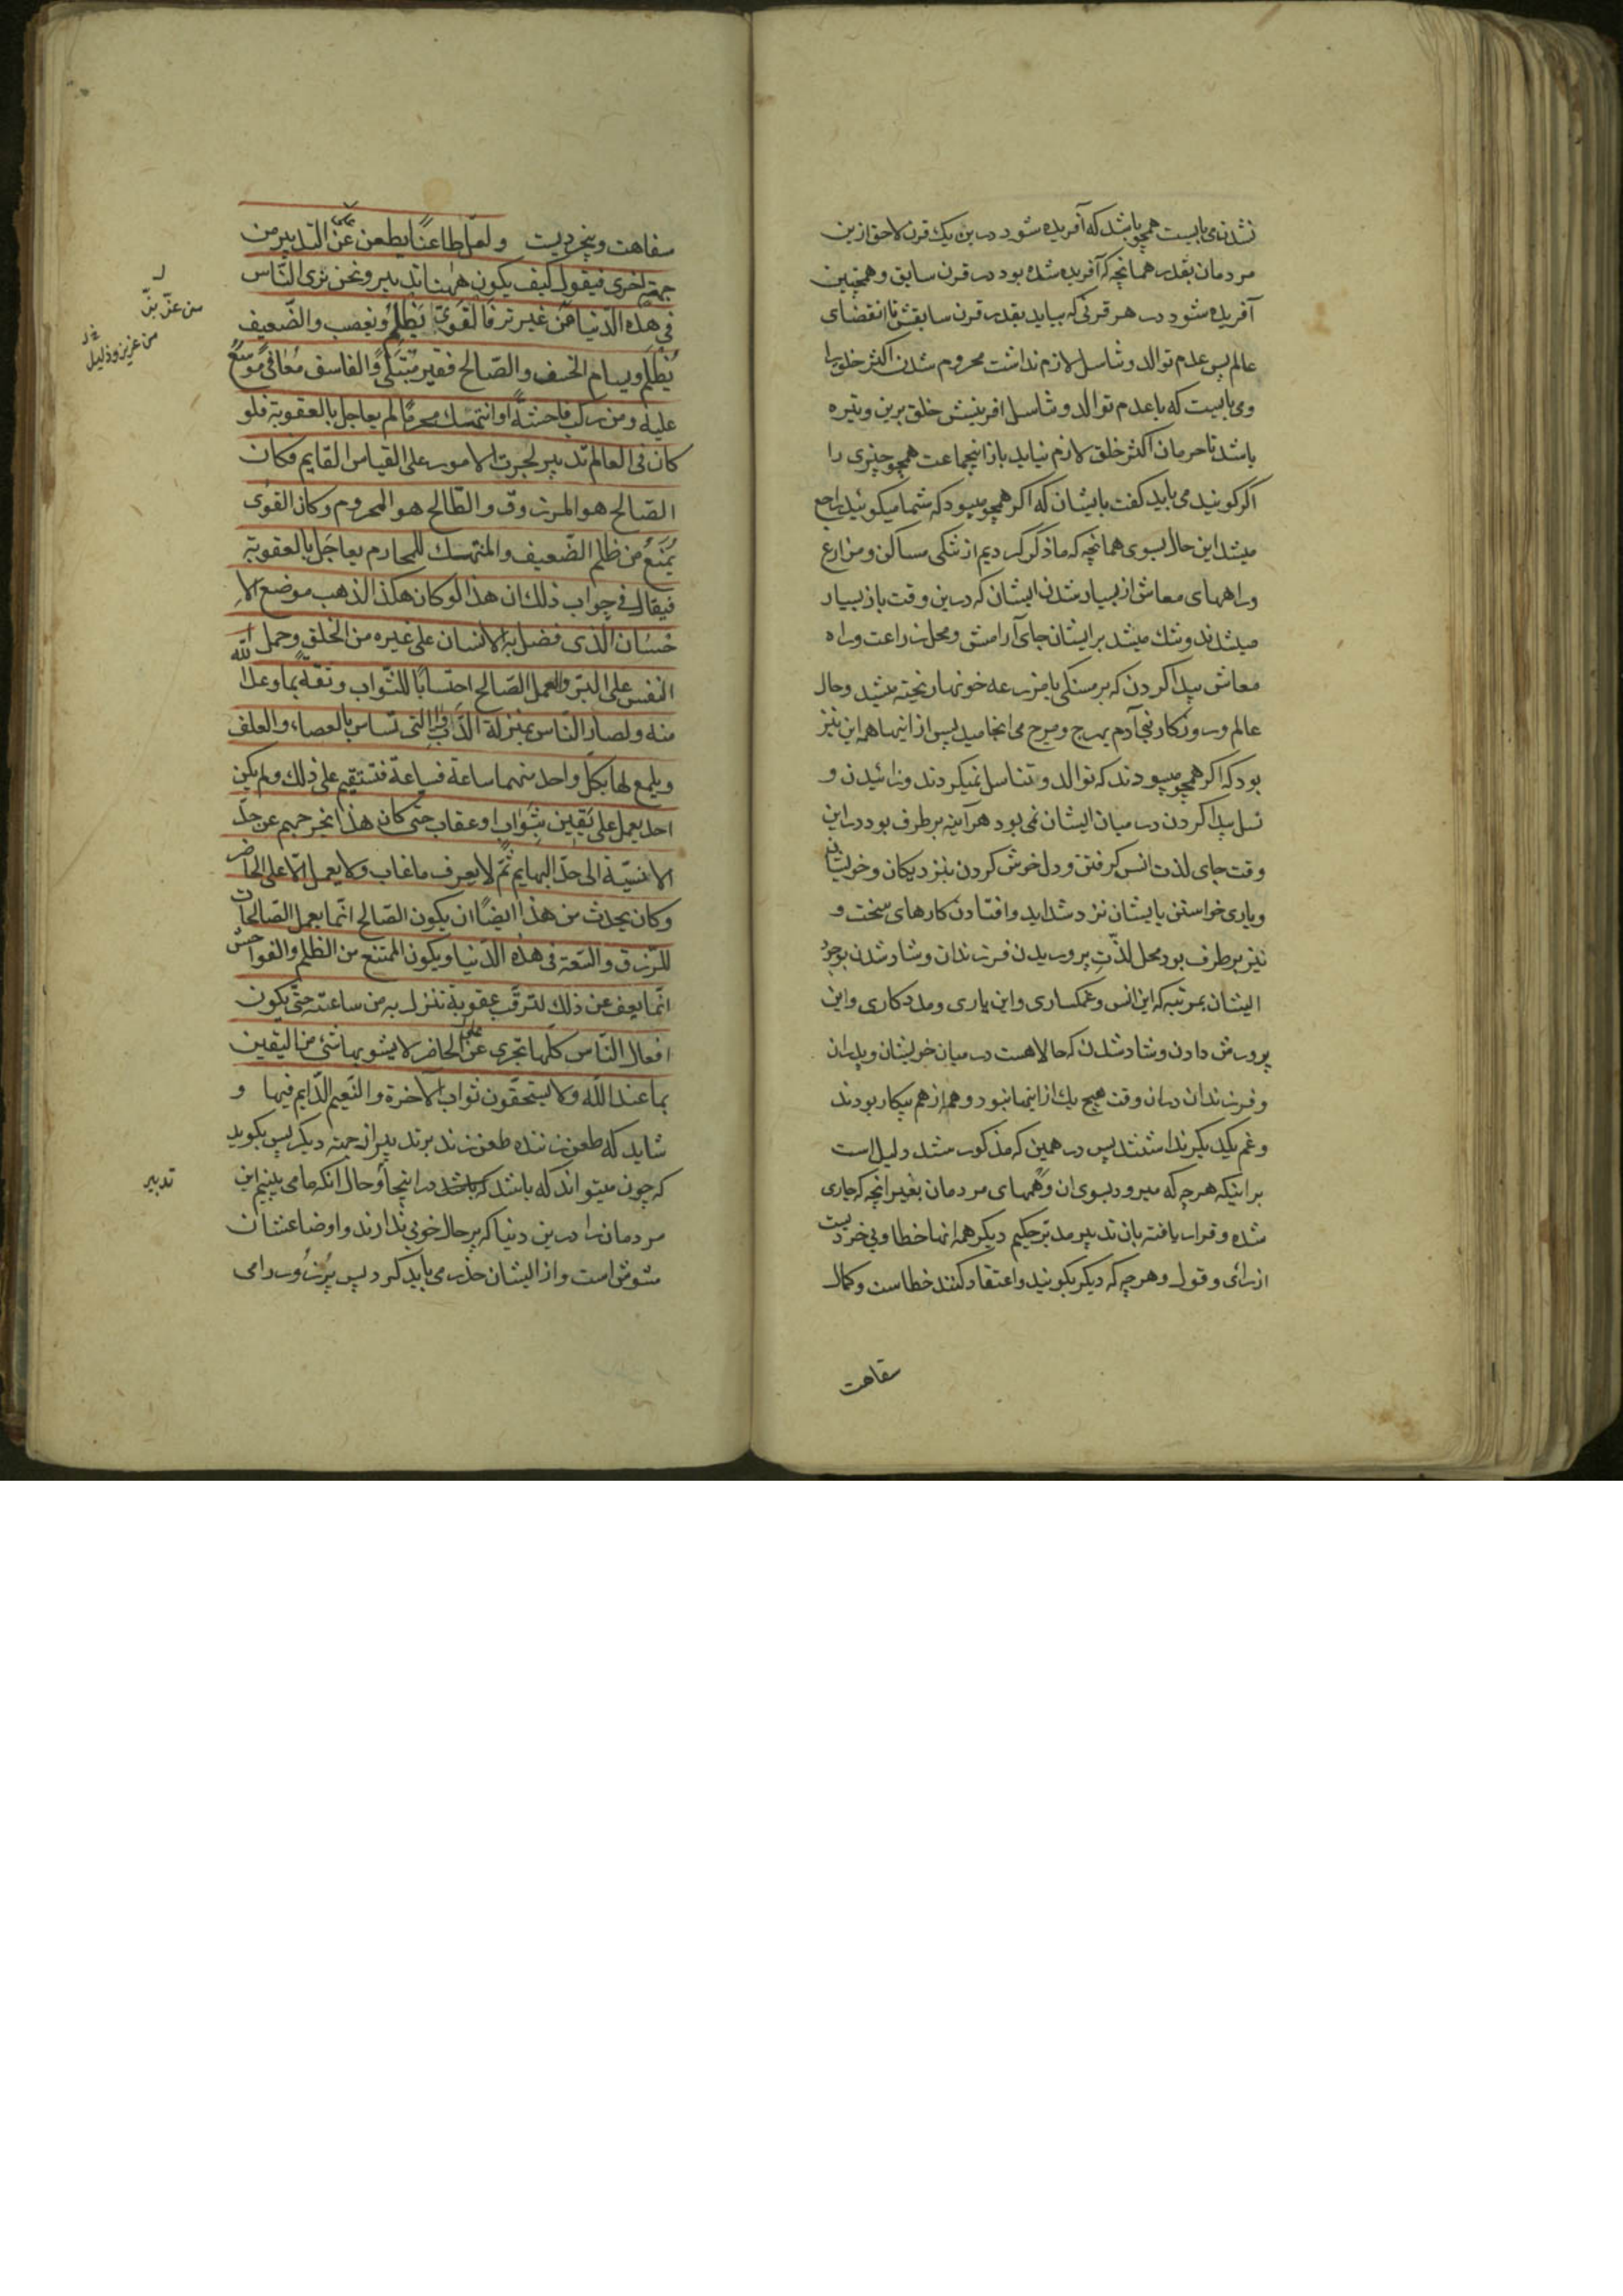 نشدندی بایست همچو باشد که آفریده شود درین یک قرن لاحق ازین
مردمان بقدر همانچه که آفریده شده بود در قرن سابق و همچنین
آفریده شود در هر قرنی که بیاید بقدر قرن سابقش تا انقضای
عالم پس عدم توالد و تناسل لازم نداشت محروم شدن اکثر خلق را
و می بایست که با عدم توالد و تناسل افرینش خلق برین وتیره
باشد تا حرمان اکثر خلق لازم نیاید باز اینجماعت همچو چیزی را
اگر گویند می باید گفت بایشان که اگر همچو میبود که شما میگوئید راجع
میشد این حال بسوی همانچه که ما ذکر کردیم از تنگی مساکن و مزارع
و راههای معاش از بسیار شدن ایشان که درین وقت باز بسیار
میشدند و تنک میشد بر ایشان جای آرامش و محل زراعت و راه
معاش پیدا کردن که بر مسکنی یا مزرعه خونها ریخته میشد و حال
عالم و روزکار بنی آدم بهرج و مرج می انجامید پس از اینها همه این نیز
بود که اکر همچو میبودند که توالد و تناسل نمیکردند و زائیدن و
نسل پیدا کردن در میان ایشان نمی بود هرآینه بر طرف بود دراین
وقت جای لذت انس کرفتن و دل خوش کردن بنزدیکان و خویشان
و یاری خواستن بایشان نزد شداید و افتادن کارهای سخت و
نیز بر طرف بود محل لذّت پروریدن فرزندان و شاد شدن بوجود
ایشان بمرتبه که این انس و غمکساری و این یاری و مددکاری و این
پرورش دادن و شاد شدن که حالا هست در میان خویشان و پدران
و فرزندان دران وقت هیچ یک از اینها نبود و هم از هم بیکار بودند
و غم یکدیکر نداشتند پس در همین که مذکور شد دلیل است
بر اینکه هر چه که میرود بسوی ان وهمهای مردمان بغیر انچه که جاری
شده و قرار یافته بان تدبیر مدبّر حکیم دیکر همه انها خطا و بی خردیست
از رائی و قول و هر چه که دیکر بکویند و اعتقاد کنند خطاست و کمال
سفاهت
سفاهت و بیخردیست ولعلّ طاعنًا یطعن عن التدبیر من
علی
جهة اخری فیقول کیف یکون ههنا تدبیر ونحن نری النّاس
فی هذه الدّنیا من عزّ بزّ فالقویّ یظلم ویغصب والضّعیف
من عزّ بزّ
من عزیز و ذلیل
یُظلم ویسام الخسف والصّالح فقیر مُبتلًی والفاسق مُعافًی موسّع
علیه ومن رکب فاحشةً او انتهک محرمًا لم یعاجل بالعقوبة فلو
کان فی العالم تدبیر لجرت الامور علی القیاس القایم فکان
الصّالح هو المرزوق والطّالح هو المحروم وکان القوی
یُمنع من ظلم الضّعیف والمنتهک للمحارم یعاجَل بالعقوبة
فیقال فی جواب ذلک ان هذا لو کان هکذا لذهب موضع الا
حسان الّذی فضل به الانسان علی غیره من الخلق وحمل
النفس علی البرّ والعمل الصّالح احتسابًا للثّواب وثقة بما وعد الله
منه ولصار النّاس بمنزلة الدّوابّ التی تساس بالعصاء والعلف
ویلمع لها بکلّ واحد منهما ساعة فساعة فتستقیم علی ذلک ولم یکن
احد یعمل علی یقین بثواب او عقاب حتی کان هذا یخرجهم عن حدّ
الانسیّة الی حدّ البهایم ثمّ لا یعرف ما غاب ولا یعمل الّا علی الحاضر
وکان یحدث من هذا ایضًا ان یکون الصّالح انّما یعمل الصّالحات
للرّزق والسّعة فی هذه الدّنیا ویکون الممتنع من الظلم والفواحش
انّما یعف عن ذلک لترقّب عقوبة تنزل به من ساعته حتّی یکون
افعال النّاس کلّها تجری علی الحاضر لا یشوبها شیء من الیقین
بما عند الله ولا یستحقّون ثواب الآخرة والنّعیم الدّایم فیها و
شاید که طعن زننده طعن زند بر تدبیر از جهة دیکر پس بکوید
که چون میتواند که باشد در اینجا و حال انکه ما می بینیم این
تدبیر
مردمان را درین دنیا که بر حال خوبی ندارند و اوضاعشان
مشوش است و از ایشان حذر می باید کرد پس پُرزور را می